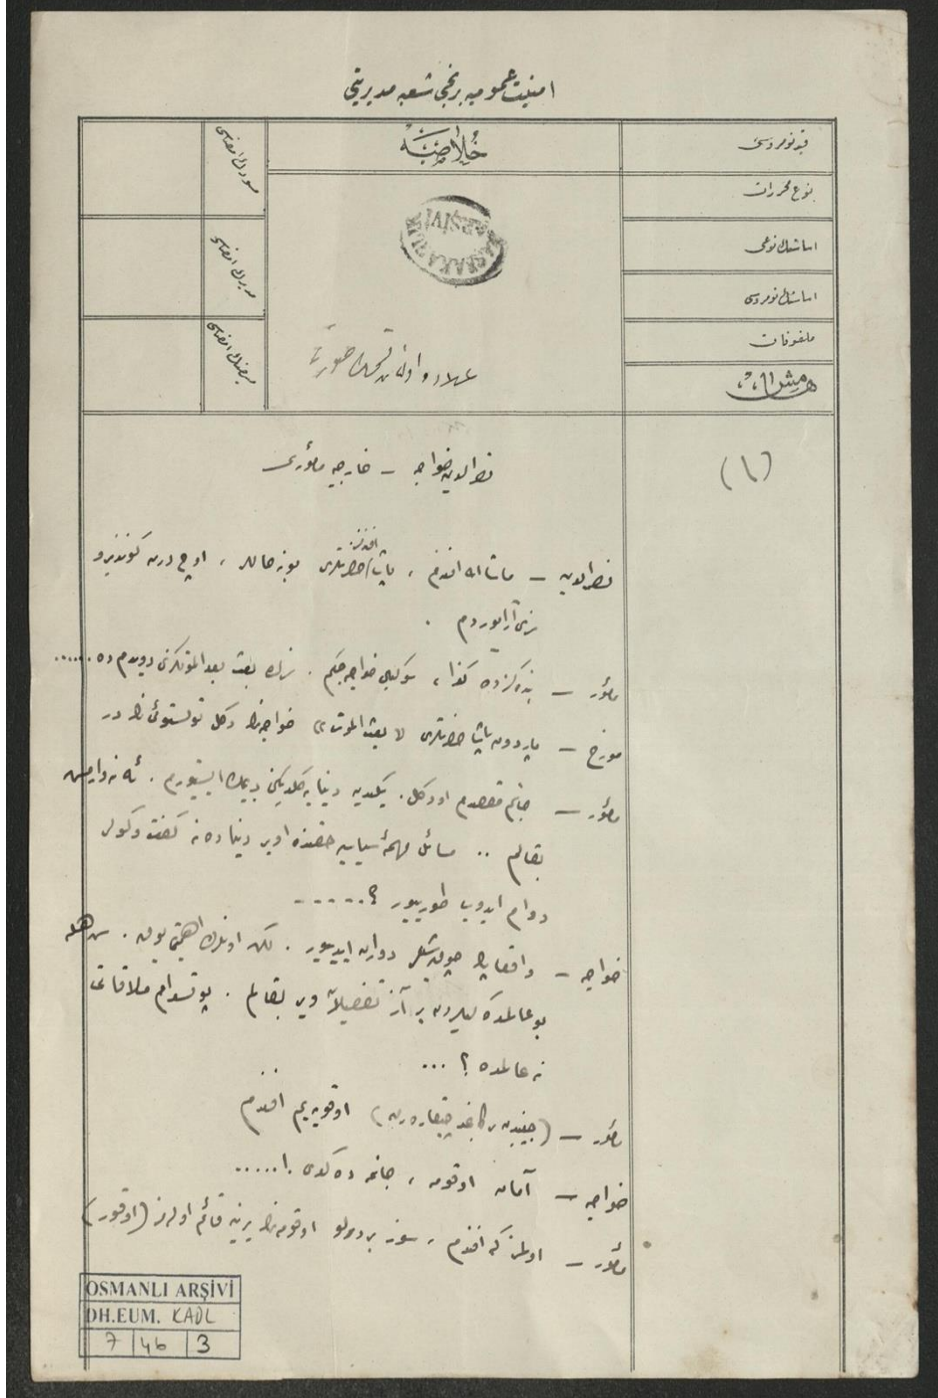 امنیت عمومیه برنجی شعبه مدیریتی
قید نومروسی
نوع محررات
اساسنك نوعی
اساسنك نومروسی
ملفوفات
خلاصه
مسودك امضاسی
مدیرك امضاسی
مبیضك امضاسی
علاوه اولنان صورت
(١)
نصرالدین خواجه – خارجیه مأموری
نصرالدین – ماشاالله افندم ، پاشا افندیمز حضرتلری بونه حاللر ، اوچ درت كوندنبرو
سزی آرایوردم .
مأمور – بنده كزده كذا ، سوكیلی خواجه جكم . سزك بعث بعد الموتكزی دویدم ده ......
مورخ – پاردون پاشا حضرتلری لا بعث الموت خواجه نك دكل تولستوئی نك در
مأمور – جانم مقصدم او دكل . یكیدن دنیایه كلدیكنی دیمك ایستیورم . ئه نه وار
بقالم .. مسائل مهمهٔ سیاسیه حقنده اوبر دنیاده نه كفت وكولر
دوام ایدوب طوریور ؟ ......
خواجه – واقعا پك چوق شیلر دوران ایدییور . لكن اونلرك اهمیتی یوق . سن هله
بو عالمده كیلردن بر آز تفصیلات ویر بقالم . پوتسدام ملاقاتی
نه عالمده ؟ ...
مأمور – (جیبندن بر كاغد چیقاره رق) اوقویه یم افندم
خواجه – آمان اوقومه ، جانمه ده كدی !......
مأمور – اولمز كه افندم ، سوز بر دورلو اوقومه نك یرینه قائم اوله مز (اوقور)
OSMANLI ARŞİVİ
DH.EUM. KADL
7 | 46 | 3